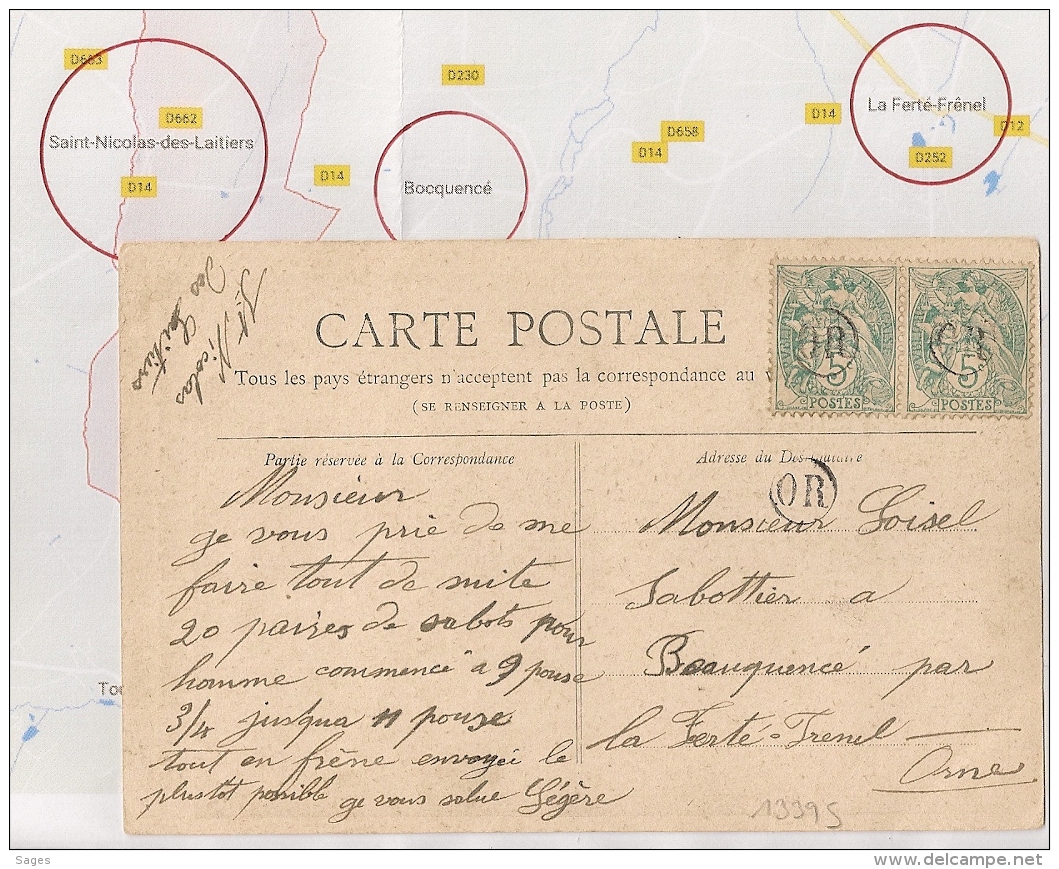 D663
D230
La Ferté-Frênel
D662
D14
D658
D12
Saint-Nicolas-des-Laitiers
D14
D252
D14
D14
Bocquencé
St Nicolas
des Laitiers
CARTE POSTALE
Tous les pays étrangers n'acceptent pas la correspondance au
(SE RENSEIGNER A LA POSTE)
OR
OR
5
5
POSTES
POSTES
Partie réservée à la Correspondance
Adresse du Destinataire
OR
Monsieur
ge vous prie de me
faire tout de suite
20 paires de sabots pour
homme commence a 9 pouse
3/4 jusqua 11 pouse
tout en frêne envoyei le
plustot possible ge vous salue Légère
Monsieur Loisel
Sabottier a
Beauquencé par
la Ferté-Frenel
Orne
13395
Tou
Sages
www.delcampe.net